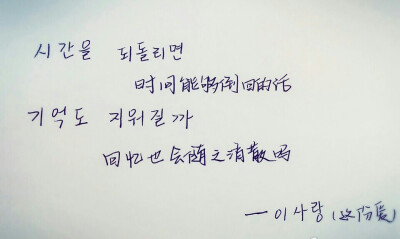 시간을 되돌리면
时间能够倒回的话
기억도 지워질까
回忆也会随之消散吗
一 이사랑 (这份爱)